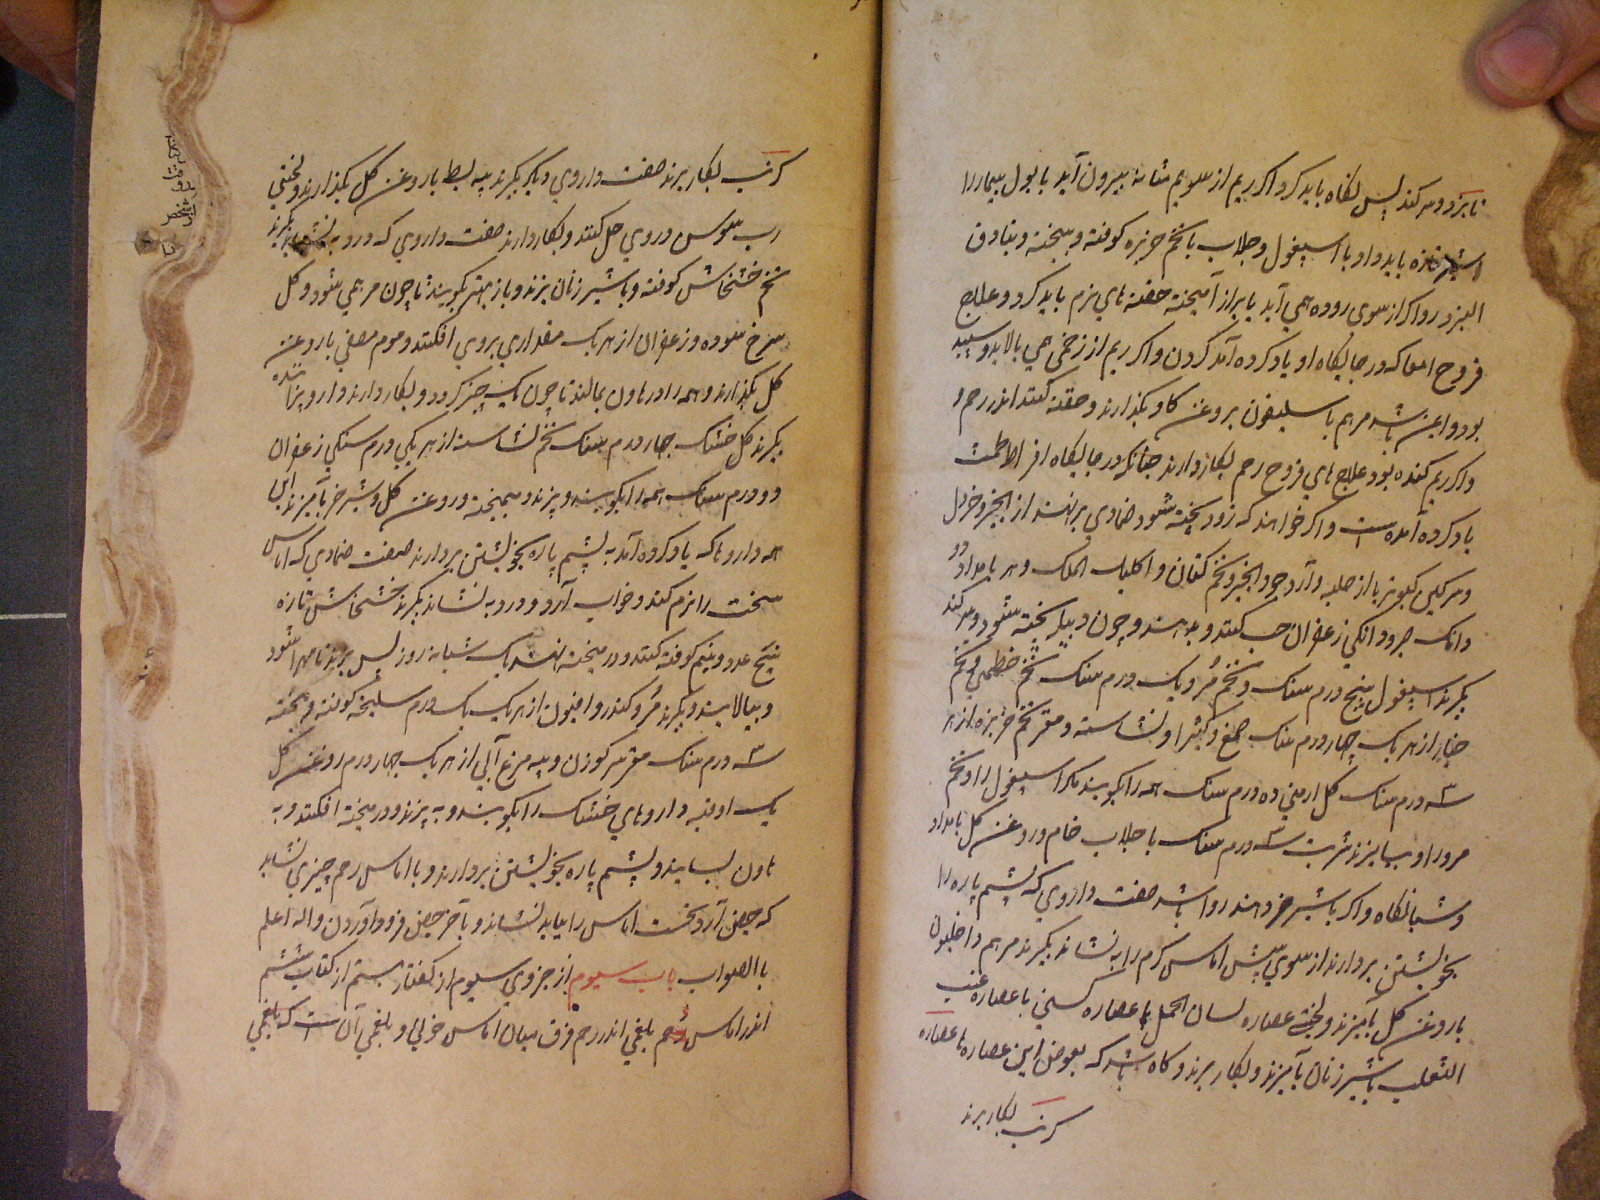 تا بزودی سر کند پس نگاه باید کرد اگر ریم از سوی مثانه بیرون آید با بول بیمار را
شیر تازه باید داد با اسپغول و جلاب با تخم خربزه کوفته و بیخته و بنادق
البزور و اگر از سوی روده همی آید با براز آمیخته حقنه های نرم باید کرد و علاج
قروح امعا که در جایگاه او یاد کرده آمد کردن و اگر ریم از زخمی همی بالاید و سپید
بود و این باشد مرهم باسلیقون بروغن گاو بگذارند و حقنه کنند اندر رحم و
و اگر ریم کنده بود علاج های قروح رحم بکار دارند چنانکه در جایگاه افراط طمث
یاد کرده آمده است و اگر خواهند که زود پخته شود ضمادی برنهند از انجیر و خردل
و سرگین کبوتر یا از حلبه و آرد جو و انجیر و تخم کتان و اکلیل الملک و هر بامداد دو
دانگ و دانگی زعفران حب کنند و بدهند و چون دبیله پخته شود و سر کند
بگیرند اسپغول پنج درم سنگ و تخم مرو یک درم سنگ تخم خطمی و تخم
خیار از هر یک چهار درم سنگ صمغ و کثیرا و نشاسته و مغز تخم خربزه از هر
سه درم سنگ گل ارمنی ده درم سنگ همه را بکوبند مگر اسپغول را و تخم
مرو را و بیامیزند شربت سه درم سنگ با جلاب خام و روغن گل بامداد
و شبانگاه و اگر با شیر خر دهند روا باشد صفت داروی که پشم پاره را
بخویشتن بردارند از سوی پیش اماس گرم را بنشاند بگیرند مرهم داخلیون
با روغن گل بیامیزند و لختی عصاره لسان الحمل یا عصاره کسنی یا عصاره عنب
الثعلب با شیر زنان بیامیزند و بکار برند و گاه باشد که بعوض این عصاره ها عصاره
کرنب بکار برند
کرنب بکار برند صفت داروی دیگر بگیرند پیه بط با روغن گل بگذارند و لختی
رب سوس در وی حل کنند و بکار دارند صفت داروی که درد بنشاند بگیرند
تخم خشخاش کوفته و با شیر زنان بپزند و باز بهتر بکوبند تا چون مرهمی شود و گل
سرخ سوده و زعفران از هر یک مقداری بروی افکنند و موم مصفی با روغن
گل بگذارند و همه را در هاون بمالند تا چون یک چیز گردد و بکار دارند دارو پزانده
بگیرند گل خشک چهار درم سنگ تخم نشاسته از هر یکی درم سنگی زعفران
دو درم سنگ همه را بکوبند و بپزند و بیخته و روغن گل و شیر خر بیامیزند این
همه داروها که یاد کرده آمد به پشم پاره بخویشتن بردارند صفت ضمادی که اماس
سخت را نرم کند و خواب آرد و درد بنشاند بگیرند خشخاش تازه
پنج عدد و نیم کوفته کنند و در پخته نهند یک شبانه روز پس بپزند تا مهرا شود
و بپالایند و بگیرند مر و کندر و افیون از هر یک یک درم سلیخه کوفته و بیخته
سه درم سنگ مغز سر گوزن و پیه مرغ آبی از هر یک چهار درم روغن گل
یک اوقیه داروهای خشک را بکوبند و بپزند و در پخته افکنند و به
هاون بسایند و پشم پاره بخویشتن بردارند و با اماس رحم چیزی نشاید
که حیض آرد نخست اماس را بباید نشاند و بآخر حیض فرود آوردن والله اعلم
بالصواب باب سیوم از جزوی سیوم از گفتار بیستم از کتاب ششم
اندر اماس رحم بلغمی اندر رحم فرق میان اماس خونی و بلغمی آن است که بلغمی